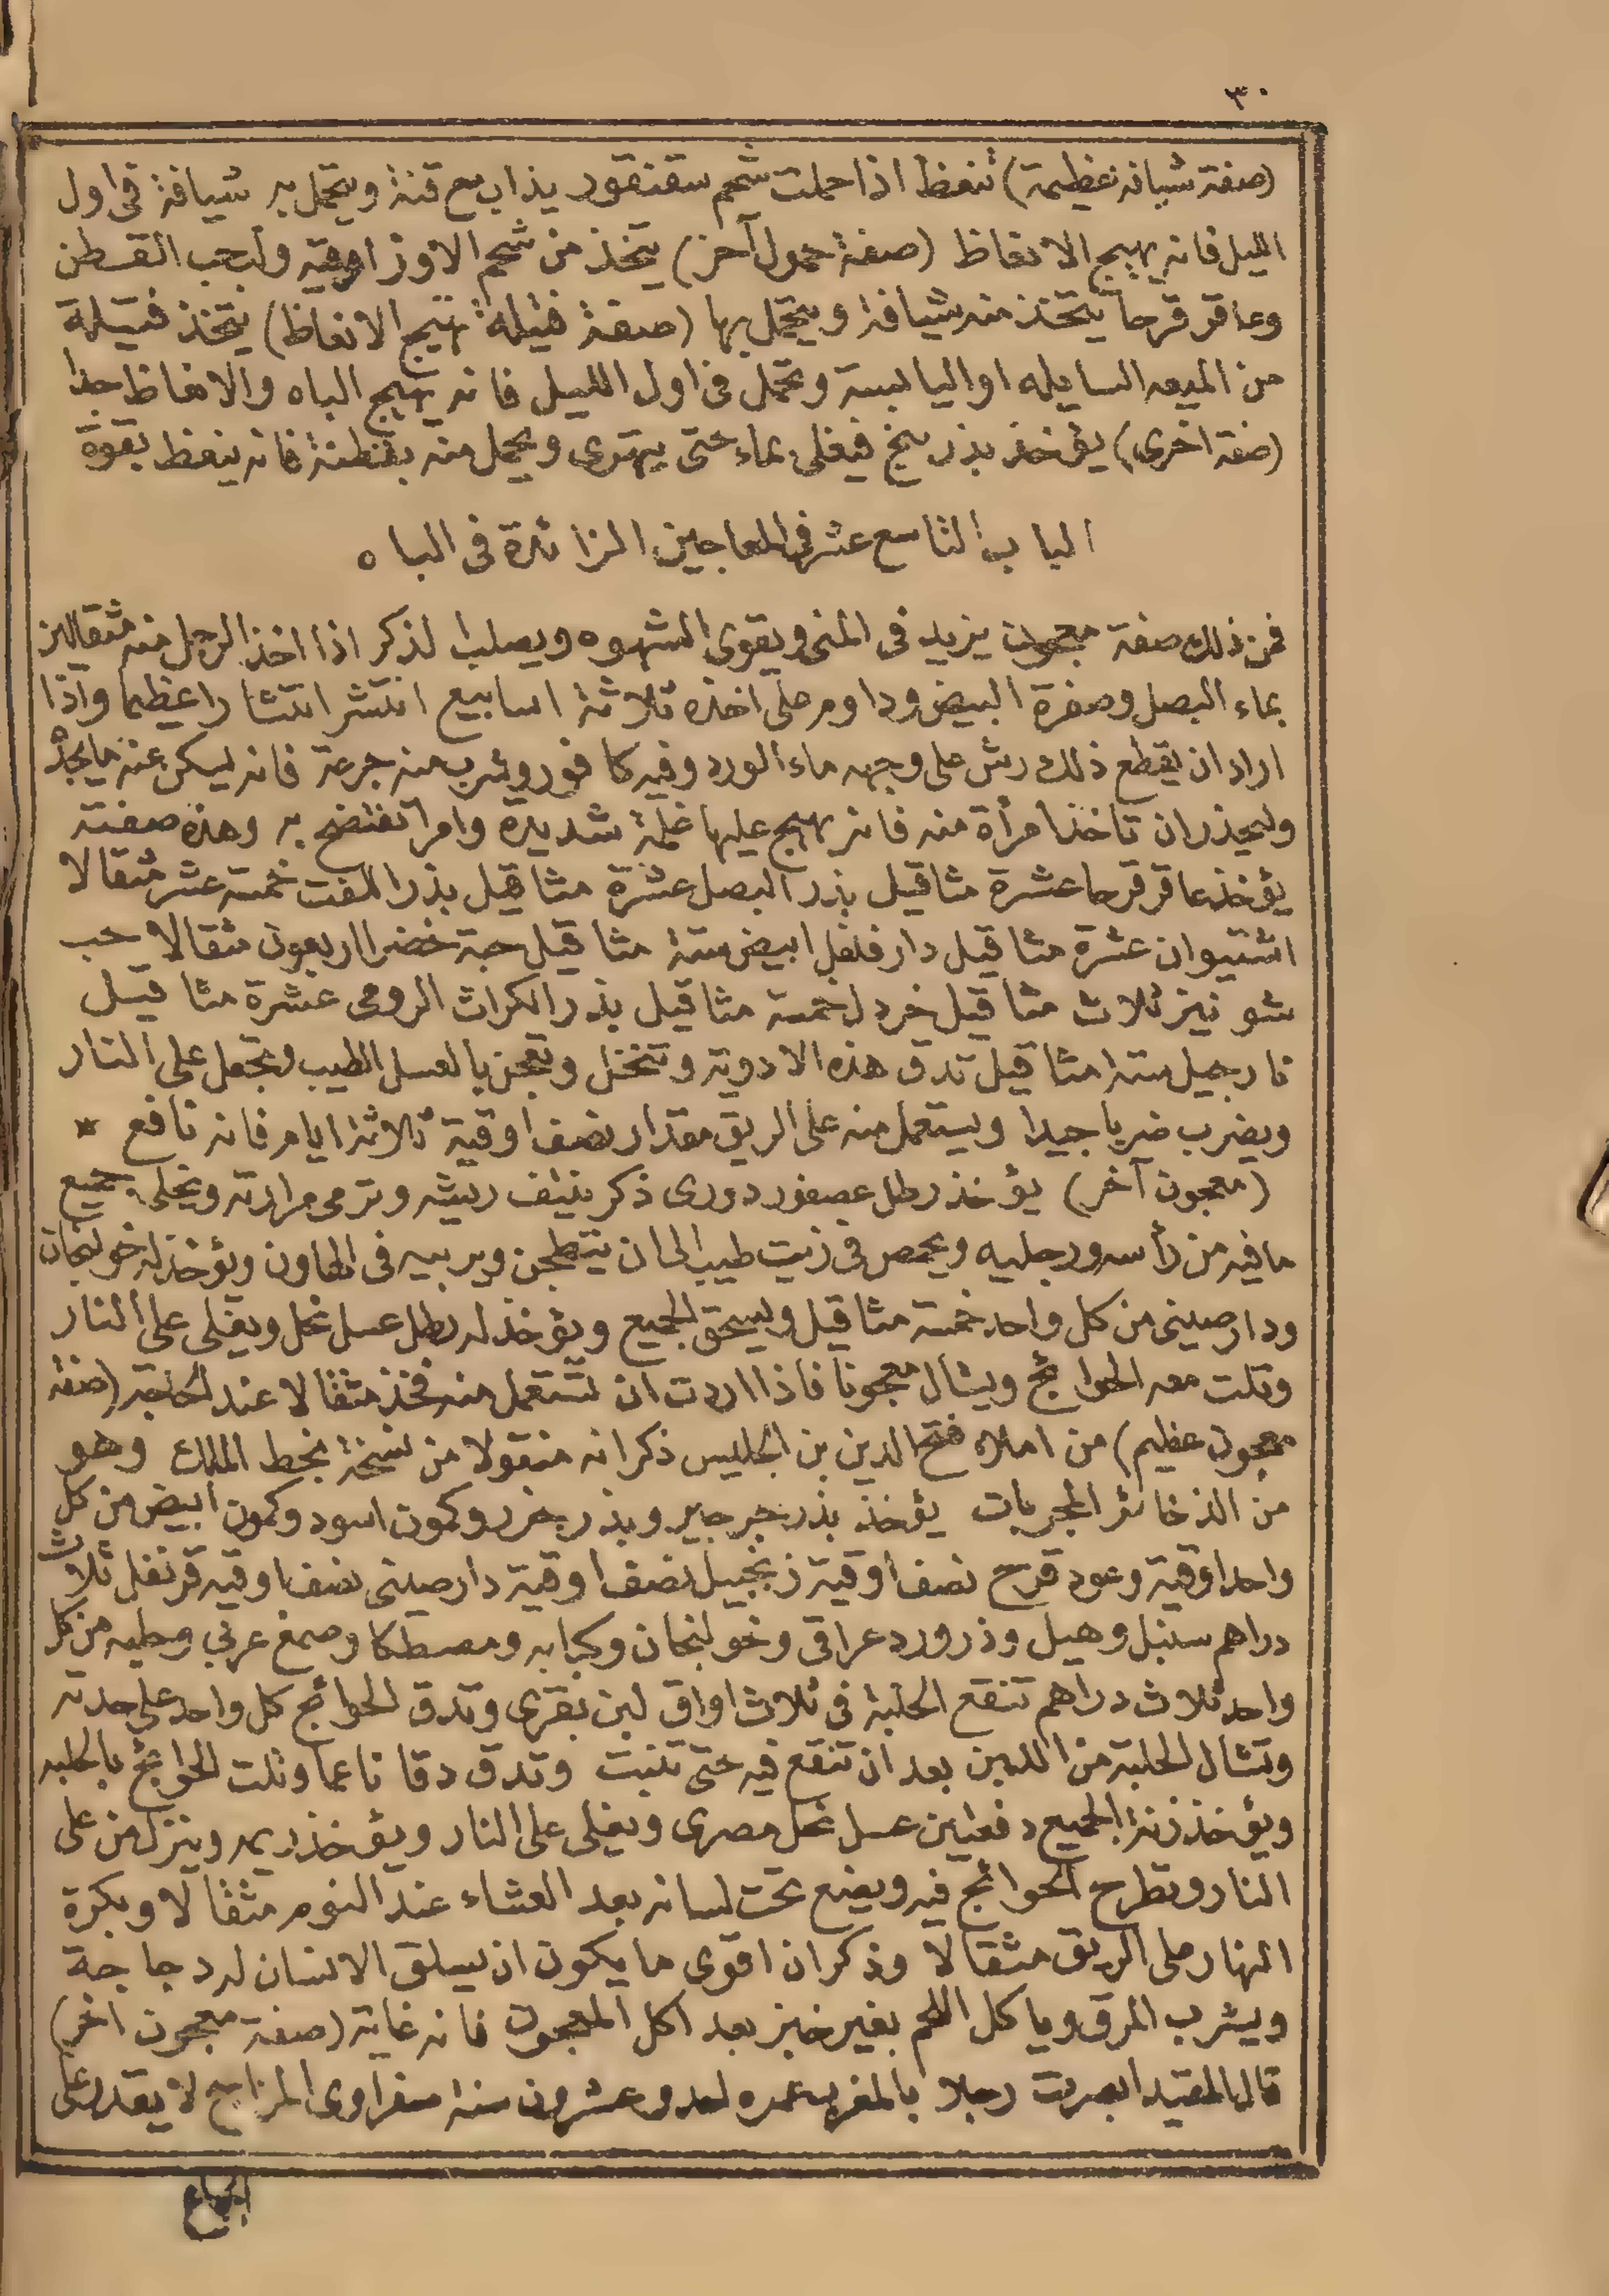 ٣٠
(صفة شيافة عظيمة) تنعظ اذا حملت شحم سقنقور يذاب مع قنة ويتحمل به شيافة فى اول
الليل فانه يهيج الانعاظ (صفة حمول آخر) يتخذ من شحم الاوز اوقيه ولبحب القطن
وعاقر قرحا يتخذ منه شيافة ويتحمل بها (صفة فتيلة تهيج الانعاظ) يتخذ فتيلة
من الميعه السايله او اليابسة وتحمل فى اول الليل فانه يهيج الباه والانعاظ جدا
(صفة اخرى) يؤخذ بذر بنج فيغلى بماء حتى يهترى ويحمل منه بقطنة فانه ينعظ بقوة
الباب التاسع عشر فى المعاجين الزائدة فى الباه
فمن ذلك صفة معجون يزيد فى المنى ويقوى الشهوه ويصلب الذكر اذا اخذ الرجل منه مثقالين
بماء البصل وصفرة البيض وداوم على اخذه ثلاثة اسابيع انتشر انتشارا عظيما واذا
اراد ان يقطع ذلك رش على وجهه ماء الورد وفيه كافور وشرب منه جرعة فانه يسكن عنه ما يجده
وليحذر ان تاخذ امرأة منه فانه يهيج عليها غلمة شديدة وامرا تفتضح به وهذه صفته
يؤخذ عاقر قرحا عشرة مثاقيل بذر البصل عشرة مثاقيل بذر اللفت خمسة عشر مثقالا
اشتيوان عشرة مثاقيل دار فلفل ابيض ستة مثاقيل حبة خضرا اربعون مثقالا حب
شونيز ثلاث مثاقيل خردل خمسة مثاقيل بذر الكراث الرومى عشرة مثاقيل
نارجيل ستة مثاقيل تدق هذه الادوية وتنخل وتعجن بالعسل الطيب وتجعل على النار
ويضرب ضربا جيدا ويستعمل منه على الريق مقدار نصف اوقية ثلاثة ايام فانه نافع *
(معجون آخر) يؤخذ رطل عصفور دورى ذكر ينتف ريشه وترمى مرارته ويخلى جميع
ما فيه من رأسه ورجليه ويحمص فى زيت طيب الى ان يتطجن ويربيه فى الهاون ويؤخذ له خولنجان
ودارصينى من كل واحد خمسة مثاقيل ويسحق الجميع ويؤخذ له رطل عسل نحل ويغلى على النار
وتلت معه الحوائج ويشال معجونا فاذا اردت ان تستعمل منه فخذ مثقالا عند الحاجة (صفة
معجون عظيم) من املاء فتح الدين بن الجليس ذكر انه منقولا من نسخة بخط الملك وهو
من الذخائر المجربات يؤخذ بذر جرجير وبذر جزر وكمون اسود وكمون ابيض من كل
واحد اوقية وعود قرح نصف اوقية زنجبيل نصف اوقية دارصينى نصف اوقيه قرنفل ثلاث
دراهم سنبل وهيل وذرورد عراقى وخولنجان وكبابه ومصطكا وصمغ عربي وحلبه من كل
واحد ثلاث دراهم تنقع الحلبة فى ثلاث اواق لبن بقرى وتدق الحوائج كل واحد على حدته
وتشال الحلبة من اللبن بعد ان تنقع فيه حتى تنبت وتدق دقا ناعما وتلت الحوائج بالحلبه
ويؤخذ زنة الجميع دفعتين عسل نحل مصرى ويغلى على النار ويؤخذ ريمه وينزل من على
النار وتطرح الحوائج فيه ويضع تحت لسانه بعد العشاء عند النوم مثقالا وبكرة
النهار على الريق مثقالا وذكر ان اقوى ما يكون ان يسلق الانسان له دجاجة
ويشرب المرق وياكل اللحم بغير خبز بعد اكل المعجون فانه غاية (صفة معجون اخر)
قال المفيد ابصرت رجلا بالمغرب عمره احد وعشرون سنة صفراوى المزاج لا يقدر على
الجماع